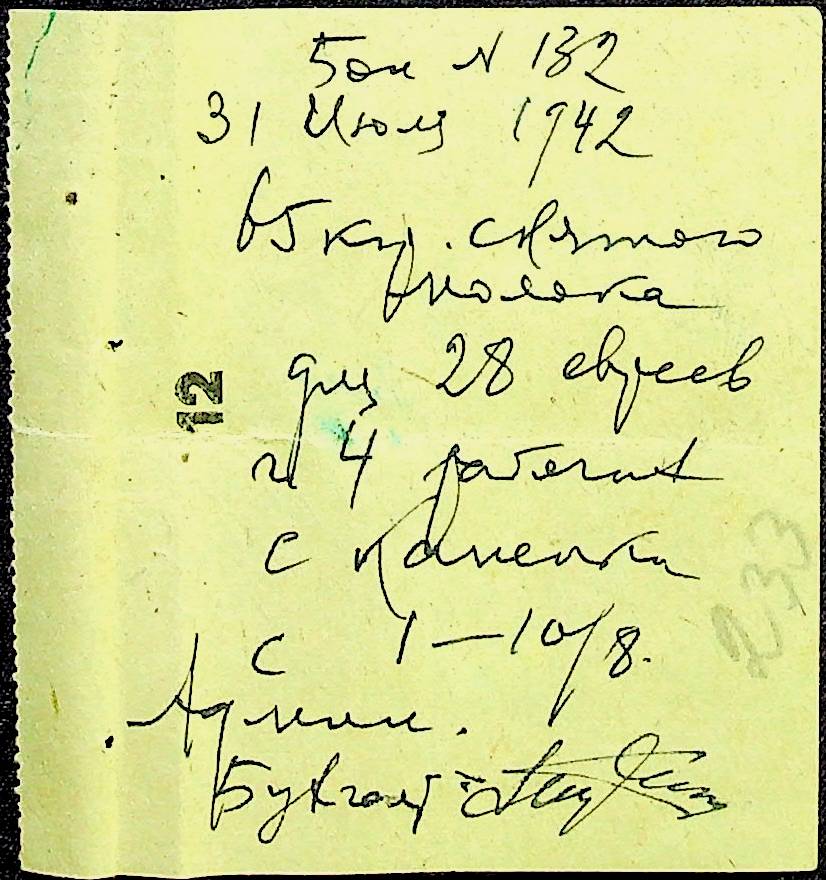 Бон N 132
31 Июля 1942
65 кгр. снятого
молока
для 28 евреев
и 4 рабочих
с Каменка
с 1—10/8.
Админ.
Бухгалт
12
233